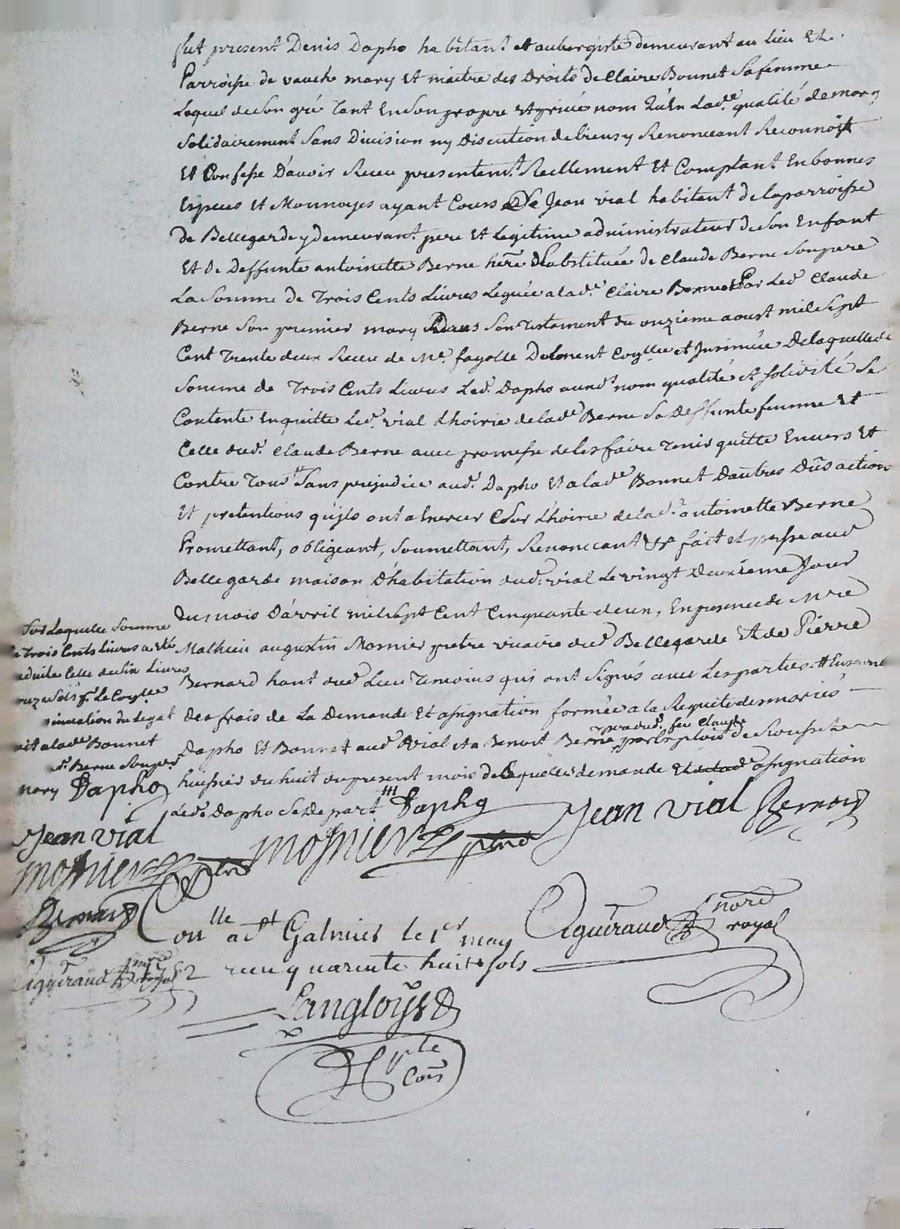 fut present Denis Dapho habitant et aubergiste demeurant au lieu Et
Parroisse de vauche mary et maitre des Droits de Claire Bonnet Sa femme
Lequel de Son gré Tant En Son propre Et privé nom qu'En Lad.e qualité de mary
Solidairement Sans Division ny Discution de biens y Renonceant Reconnoit
Et Confesse D'avoir Receu presentem.t Réellement Et Comptant En bonnes
Especes et Monnoyes ayant Cours De Jean vial habitant de la parroisse
de Bellegarde y demeurant pere Et Legitime administrateur de Son Enfant
Et de deffunte antoinette Berne hére Substituée de Claude Berne Son pere
La Somme de Trois Cents Livres Leguée a lad.e Claire par Led. Claude
Berne Son premier mary Dans Son Testament du onzieme aoust mil Sept
Cent Trente deux Receu de M.e fayolle et Insinuée De laquelle de
Somme de Trois Cents Livres Led. Dapho aud. nom qualité et Solidité Se
Contente En quitte Led. vial Lhoirie de lad.e Berne Sa deffunte femme Et
Celle dud. Claude Berne avec promesse de les faire Tenir quitte Envers Et
Contre Tous Sans prejudice aud. Dapho Et a lad.e Bonnet D'autres Dûs action
Et pretentions qu'ils ont a Exercer Sur Lhoirie de lad.e antoinette Berne
Promettant, obligeant, Soumettant, Renonceant &a fait et passé aud
Bellegarde maison D'habitation dud. vial Le vingt Deuxieme Jour
du mois D'avril mil Sept Cent Cinquante deux, En presence de M.re
Mathieu augustin Mosnier pretre vicaire dud. Bellegarde Et de Pierre
Bernard hant dud. Lieu Temoins qui ont Signés avec Les parties
des frais de La Demande Et assignation formée a la Requete des mariés
Dapho Et Bonnet aud. vial Et a Benoit Berne par Exploit de
pere dud. feu Claude
huissier du huit du present mois de laquelle demande assignation
Led. Dapho Se Depart Dapho
Jean vial Bernard
Mosnier ptre
Sur Laquelle Somme
de Trois Cents Livres a été
deduite Celle de Six Livres
onze Sols p.r Le
insinuation du Legat
fait a lad.e Bonnet
mary Dapho
Jean vial
Mosnier ptre
Bernard
Aguiraud
Con.lle a S.t Galmier le 1.er may
1752 receu quarente huit sols
Aguiraud no.re royal
Langloys